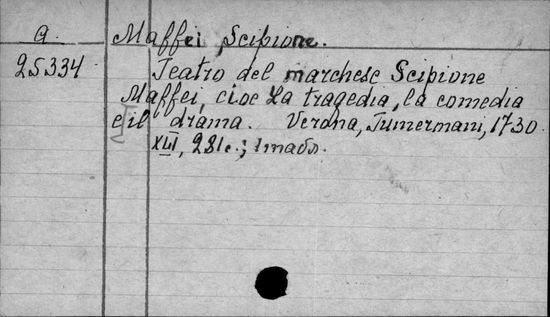 a.
Maffei Scipione.
25334
Teatro del marchese Scipione
Maffei, cioe La tragedia, la comedia
e il drama. Verona, Tumermani, 1730
XLII, 281c.; 1 табл.